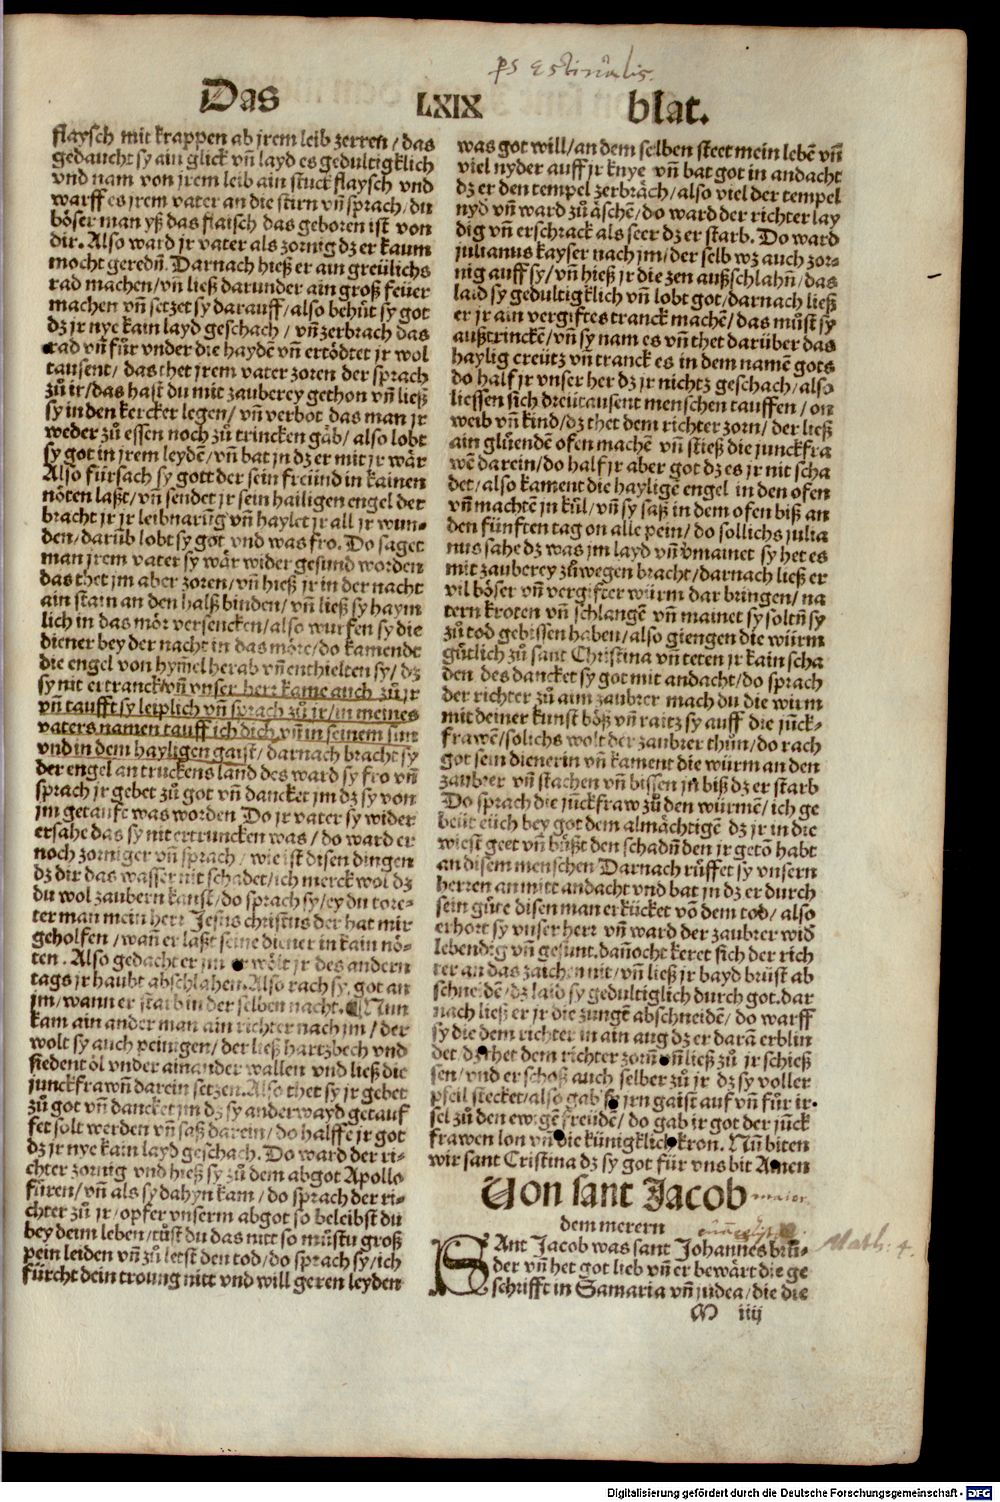 ps estiualis.
Das LXIX blat.
flaysch mit krappen ab jrem leib zerren / das
gedaucht sy ain glick vñ layd es gedultigklich
vnd nam von jrem leib ain stuck flaysch vnd
warff es jrem vater an die stirn vñ sprach / du
böser man yß das flaisch das geboren ist von
dir. Also ward jr vater als zornig dz er kaum
mocht geredñ. Darnach hieß er ain greülichs
rad machen / vñ ließ darunder ain groß feüer
machen vñ setzet sy darauff / also behůt sy got
dz jr nye kain layd geschach / vñ zerbrach das
rad vñ fůr vnder die haydẽ vñ ertödtet jr wol
tausent / das thet jrem vater zoren der sprach
zů ir / das hast du mit zauberey gethon vñ ließ
sy in den kercker legen / vñ verbot das man jr
weder zů essen noch zů trincken gäb / also lobt
sy got in jrem leydẽ / vñ bat jn dz er mit jr wär
Also fürsach sy gott der sein freünd in kainen
nöten laßt / vñ sendet jr sein hailigen engel der
bracht jr jr leibnarũg vñ haylet jr all jr wun-
den / darũb lobt sy got vnd was fro. Do saget
man jrem vater sy wär wider gesund worden
das thet jm aber zoren / vñ hieß jr in der nacht
ain stain an den halß binden / vñ ließ sy haym
lich in das mör versencken / also wurfen sy die
diener bey der nacht in das möre / do kamendt
die engel von hym̃el herab vñ enthielten sy / dz
sy nit ertranck / vñ vnser herr kame auch zů jr
vñ taufft sy leiplich vñ sprach zů jr / in meines
vaters namen tauff ich dich vñ in seinem sun
vnd in dem hayligen gaist / darnach bracht sy
der engel an truckens land des ward sy fro vñ
sprach jr gebet zů got vñ dancket jm dz sy von
jm getauft was worden Do jr vater sy wider
ersahe das sy nit ertruncken was / do ward er
noch zorniger vñ sprach / wie ist disen dingen
dz dir das wasser nit schadet / ich merck wol dz
du wol zaubern kanst / do sprach sy / ey du tore-
ter man mein herr Jesus christus der hat mir
geholfen / wañ er laßt seine diener in kain nö-
ten. Also gedacht er jm er wölt jr des andern
tags jr haubt abschlahen. Also rach sy got an
jm / wann er starb in der selben nacht. Nun
kam ain ander man ain richter nach jm / der
wolt sy auch peinigen / der ließ hartzbech vnd
siedent öl vnder ainander wallen vnd ließ die
junckfrawñ darein setzen. Also thet sy jr gebet
zů got vñ dancket jm dz sy anderwayd getauf
fet solt werden vñ saß darein / do halffe jr got
dz jr nye kain layd geschach. Do ward der ri-
chter zornig vnd hieß sy zů dem abgot Apollo
fůren / vñ als sy dahyn kam / do sprach der ri-
chter zů jr / opfer vnserm abgot so beleibst du
bey deim leben / tůst du das nitt so můstu groß
pein leiden vñ zů letst den tod / do sprach sy / ich
fürcht dein troung nitt vnd will geren leyden
was got will / an dem selben steet mein lebẽ vñ
viel nyder auff jr knye vñ bat got in andacht
dz er den tempel zerbräch / also viel der tempel
nyd vñ ward zů äschẽ / do ward der richter lay
dig vñ erschrack als seer dz er starb. Do ward
julianus kayser nach jm / der selb wz auch zor-
nig auff sy / vñ hieß jr die zen außschlahñ / das
laid sy gedultigklich vñ lobt got / darnach ließ
er jr ain vergiftes tranck machẽ / das můst sy
außtrinckẽ / vñ sy nam es vñ thet darüber das
haylig creütz vñ tranck es in dem namẽ gots
do half jr vnser her dz jr nichtz geschach / also
liessen sich dreütausent menschen tauffen / on
weib vñ kind / dz thet dem richter zorn / der ließ
ain glüendẽ ofen machẽ vñ stieß die junckfra
wẽ darein / do half jr aber got dz es jr nit scha
det / also kament die hayligẽ engel in den ofen
vñ machtẽ jn kůl / vñ sy saß in dem ofen biß an
den fünften tag on alle pein / do sollichs julia
nus sahe dz was jm layd vñ vmainet sy het es
mit zauberey zůwegen bracht / darnach ließ er
vil böser vñ vergifter würm dar bringen / na
tern kroten vñ schlangẽ vñ mainet sy soltñ sy
zů tod gebissen haben / also giengen die würm
gůtlich zů sant Christina vñ teten jr kain scha
den des dancket sy got mit andacht / do sprach
der richter zů aim zaubrer mach du die würm
mit deiner kunst böß vñ raitz sy auff die jũck-
frawẽ / solichs wolt der zaubrer thůn / do rach
got sein dienerin vñ kament die würm an den
zaubrer vñ stachen vñ bissen jn biß dz er starb
Do sprach die jũckfraw zů den würmẽ / ich ge
beüt eüch bey got dem almächtigẽ dz jr in die
wiest geet vñ bůßt den schadñ den jr getõ habt
an disem menschen Darnach růffet sy vnsern
herren an mitt andacht vnd bat jn dz er durch
sein güte disen man erkücket võ dem tod / also
erhort sy vnser herr vñ ward der zaubrer wid
lebendig vñ gesunt. dañocht keret sich der rich
ter an das zaichen nit / vñ ließ jr bayd brüst ab
schneidẽ / dz laid sy gedultiglich durch got. dar
nach ließ er jr die zungẽ abschneidẽ / do warff
sy die dem richter in ain aug dz er darã erblin
det / dz thet dem richter zorñ vñ ließ zů jr schieß
sen / vnd er schoß auch selber zů jr dz sy voller
pfeil stecket / also gab sy jrn gaist auf vñ fůr ir-
sel zů den ewigẽ freüdẽ / do gab ir got der jũck
frawen lon vñ die künigklich kron. Nũ biten
wir sant Cristina dz sy got für vns bit Amen
Von sant Jacob maior
dem merern
SAnt Jacob was sant Johannes brů-
der vñ het got lieb vñ er bewärt die ge
schrifft in Samaria vñ judea / die die
Math: 4.
M iiij
Digitalisierung gefördert durch die Deutsche Forschungsgemeinschaft - DFG